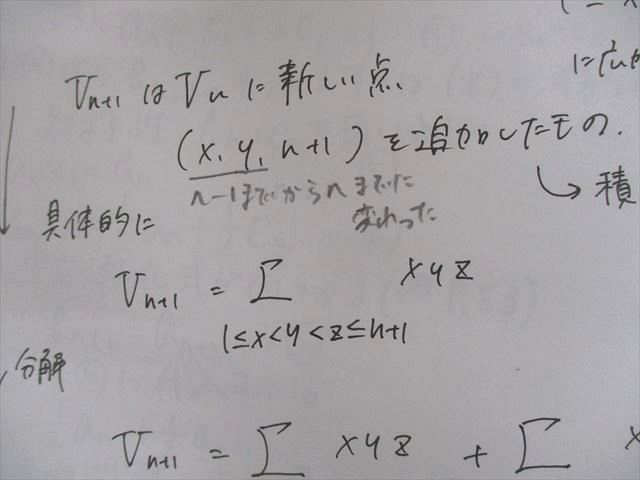 V_{n+1} は V_n に新しい点
(x, y, n+1) を追加したもの.
n-1までからnまでに
変わった
→ 積
具体的に
V_{n+1} = Σ xyz
1≤x<y<z≤n+1
分解
V_{n+1} = Σ xyz + Σ